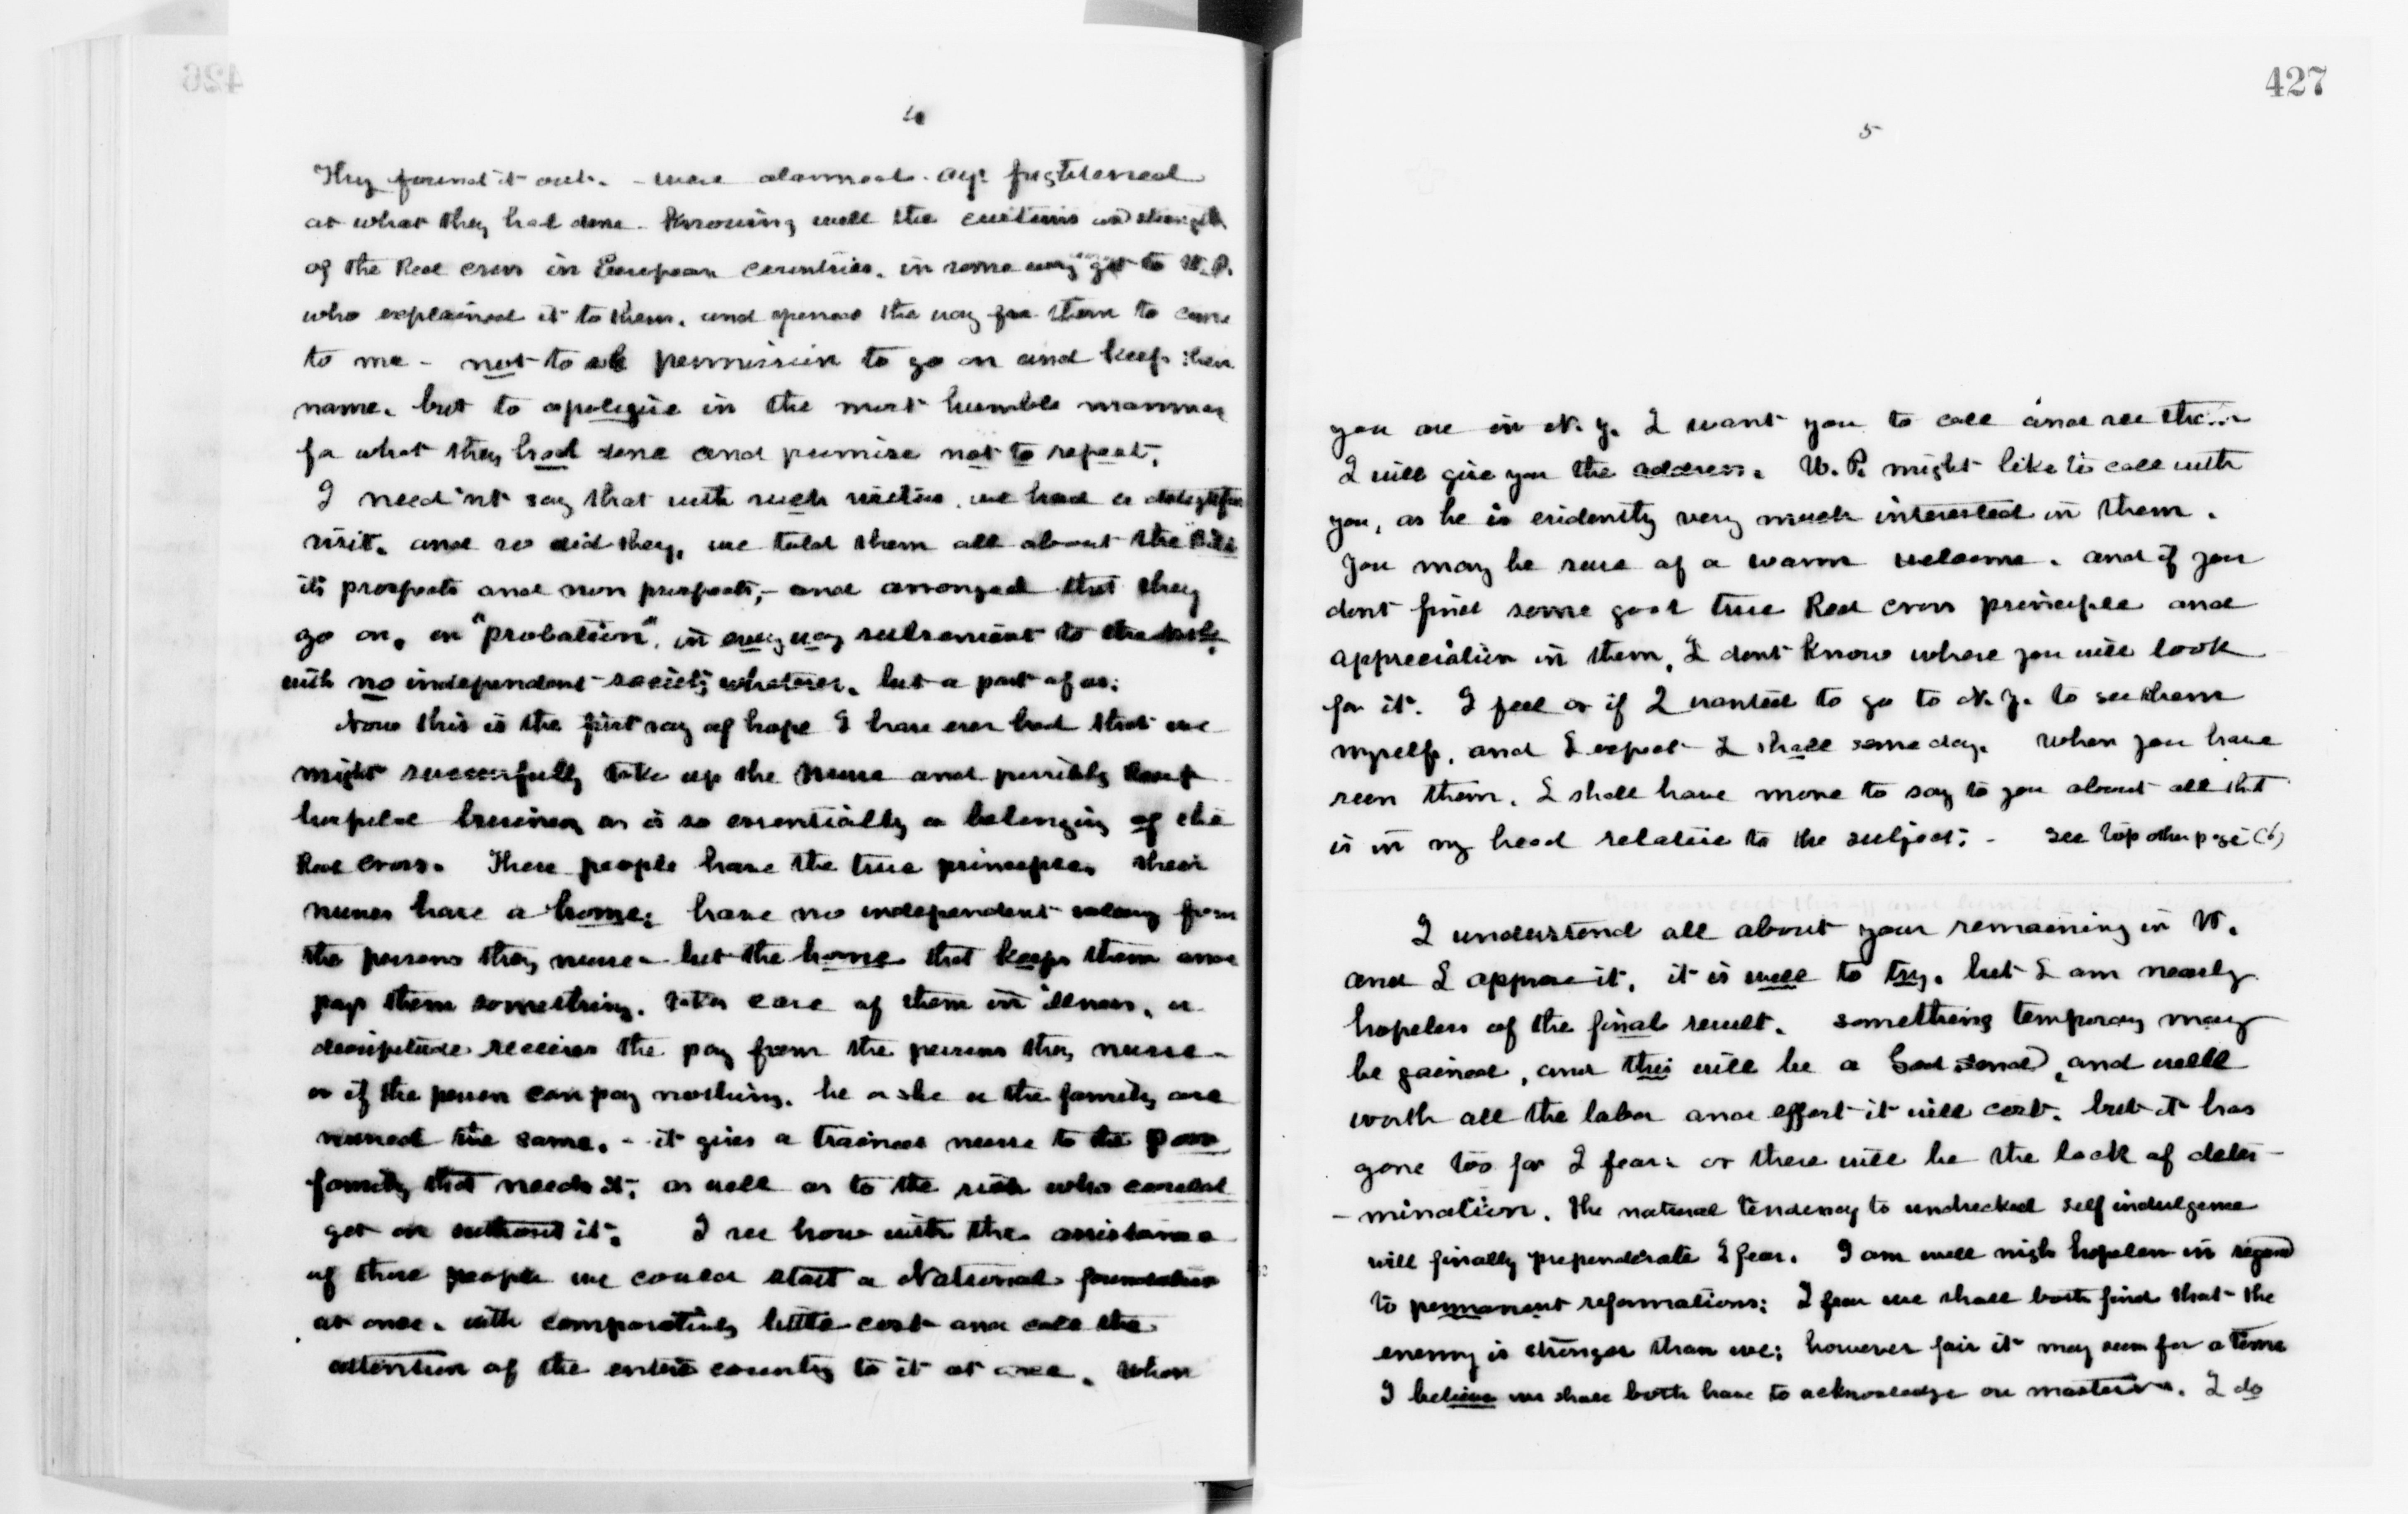 4
They found it out. - were alarmed. aye frightened
at what they had done - Knowing well the customs and strength
of the Red cross in European countries. in some way got to W. P.
who explained it to them. and opened the way for them to come
to me - not to ask permission to go on and keep their
name. but to apologize in the most humble manner
for what they had done and promise not to repeat.
I need'nt say that with such visitors. we had a delightful
visit. and so did they, we told them all about the Bill
its prospects and non prospects, - and arranged that they
go on. on "probation", in every way subservient to the
with no independent society whatever. but a part of us;
Now this is the first ray of hope I have ever had that we
might successfully take up the nurse and possibly
hospital business as is so essentially a belonging of the
Red Cross. These people have the true principles, their
nurses have a home; have no independent salary from
the persons they nurse - but the home that keeps them and
pays them something. takes care of them in illness, or
decrepitude receives the pay from the persons they nurse -
or if the person can pay nothing. he or she or the family are
nursed the same. - it gives a trained nurse to the poor
family that needs it; as well as to the rich who could
get on without it. I see how with the assistance
of these people we could start a National foundation
at once. with comparatively little cost and call the
attention of the entire country to it at once. When
427
5
you are in N. Y. I want you to call and see them
I will give you the address. W. P. might like to call with
you, as he is evidently very much interested in them.
You may be sure of a warm welcome. and if you
dont find some good true Red Cross principle and
appreciation in them, I dont know where you will look
for it. I feel as if I wanted to go to N. Y. to see them
myself, and I expect I shall some day. When you have
seen them. I shall have more to say to you about all that
is in my head relative to the subject; - see top other page (6)
I understand all about your remaining in W.
and I approve it, it is well to try. but I am nearly
hopeless of the final result. something temporary may
be gained, and this will be a God send, and well
worth all the labor and effort it will cost. but it has
gone too far I fear: or there will be the lack of deter-
-mination. The natural tendency to unchecked self indulgence
will finally preponderate I fear. I am well nigh hopeless in regard
to permanent reformations; I fear we shall both find that the
enemy is stronger than we; however fair it may seem for a time
I believe we shall both have to acknowledge our masters. I do